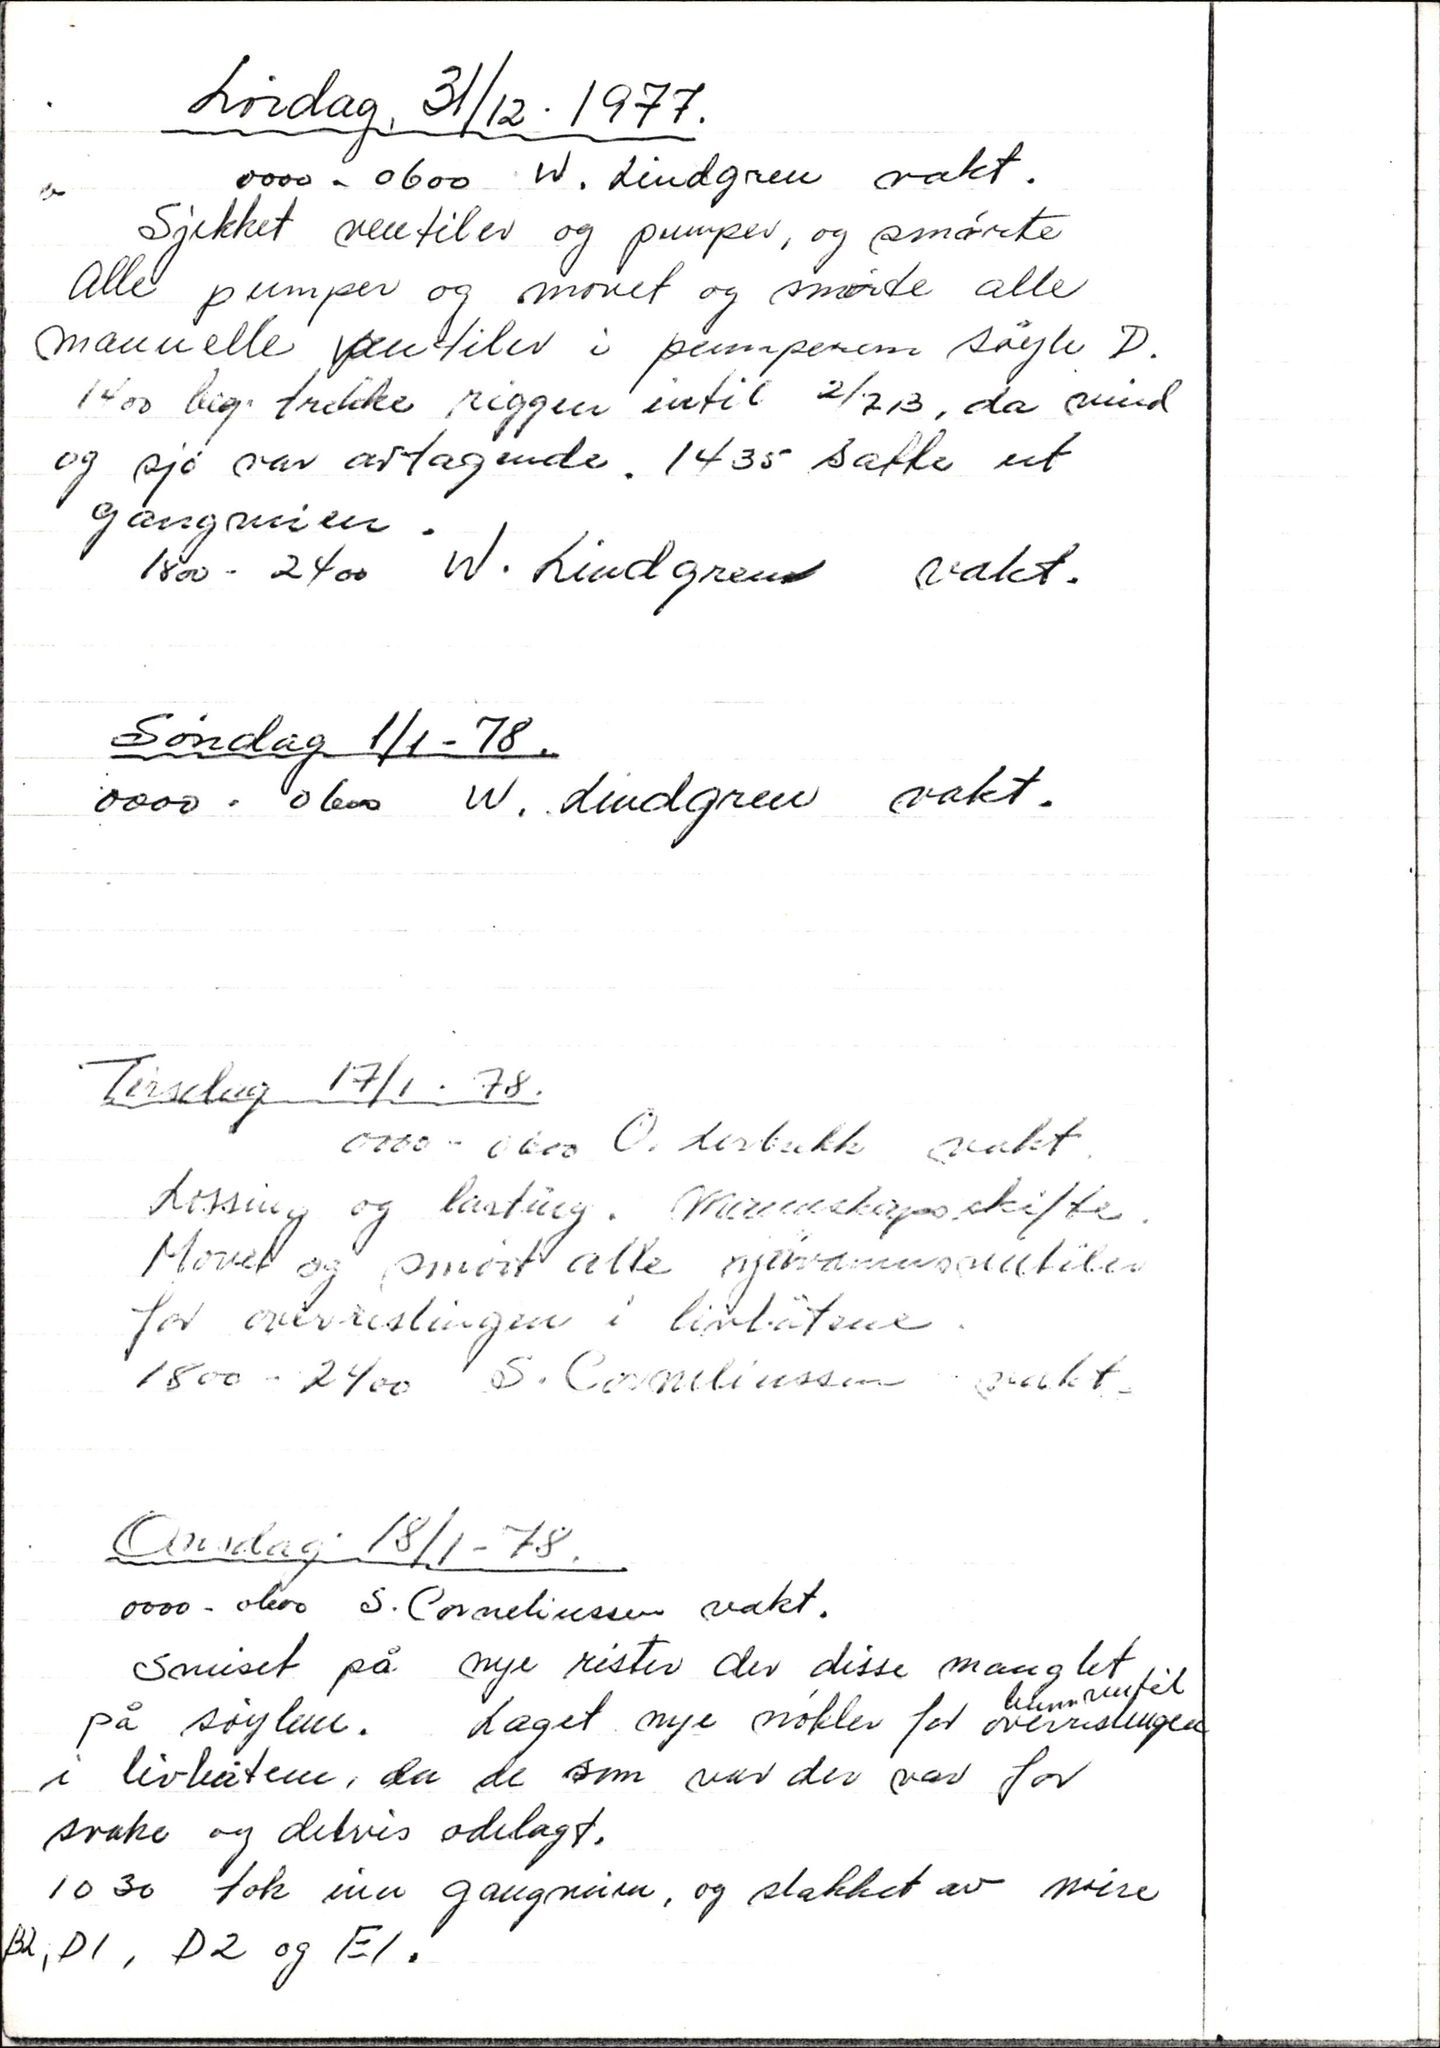 Lördag, 31/12. 1977.
0000 - 0600 W. Lindgren vakt.
Sjekket ventiler og pumper, og smörte
Alle pumper og movet og smörte alle
manuelle ventiler i pumperom söyle D.
1400 beg. trekke riggen intil 2/7 B, da vind
og sjö var avtagende. 1435 satte ut
gangveien.
1800 - 2400 W. Lindgren vakt.
Söndag 1/1 - 78.
0000 - 0600 W. Lindgren vakt.
Tirsdag 17/1 - 78.
0000 - 0600 O. vakt.
Lossing og lasting. Mannskapsskifte.
Movet og smört alle sjövannsventiler
for overrislingen i livbåtene.
1800 - 2400 S. Corneliussen vakt.
Onsdag 18/1 - 78.
0000 - 0600 S. Corneliussen vakt.
Sveiset på nye rister der disse manglet
på söylene. Laget nye nökler for bunnventil overrislingen
i livbåtene, da de som var der var for
svake og delvis ödelagt.
1030 tok inn gangveien, og slakket av wire
B2, D1, D2 og E1.